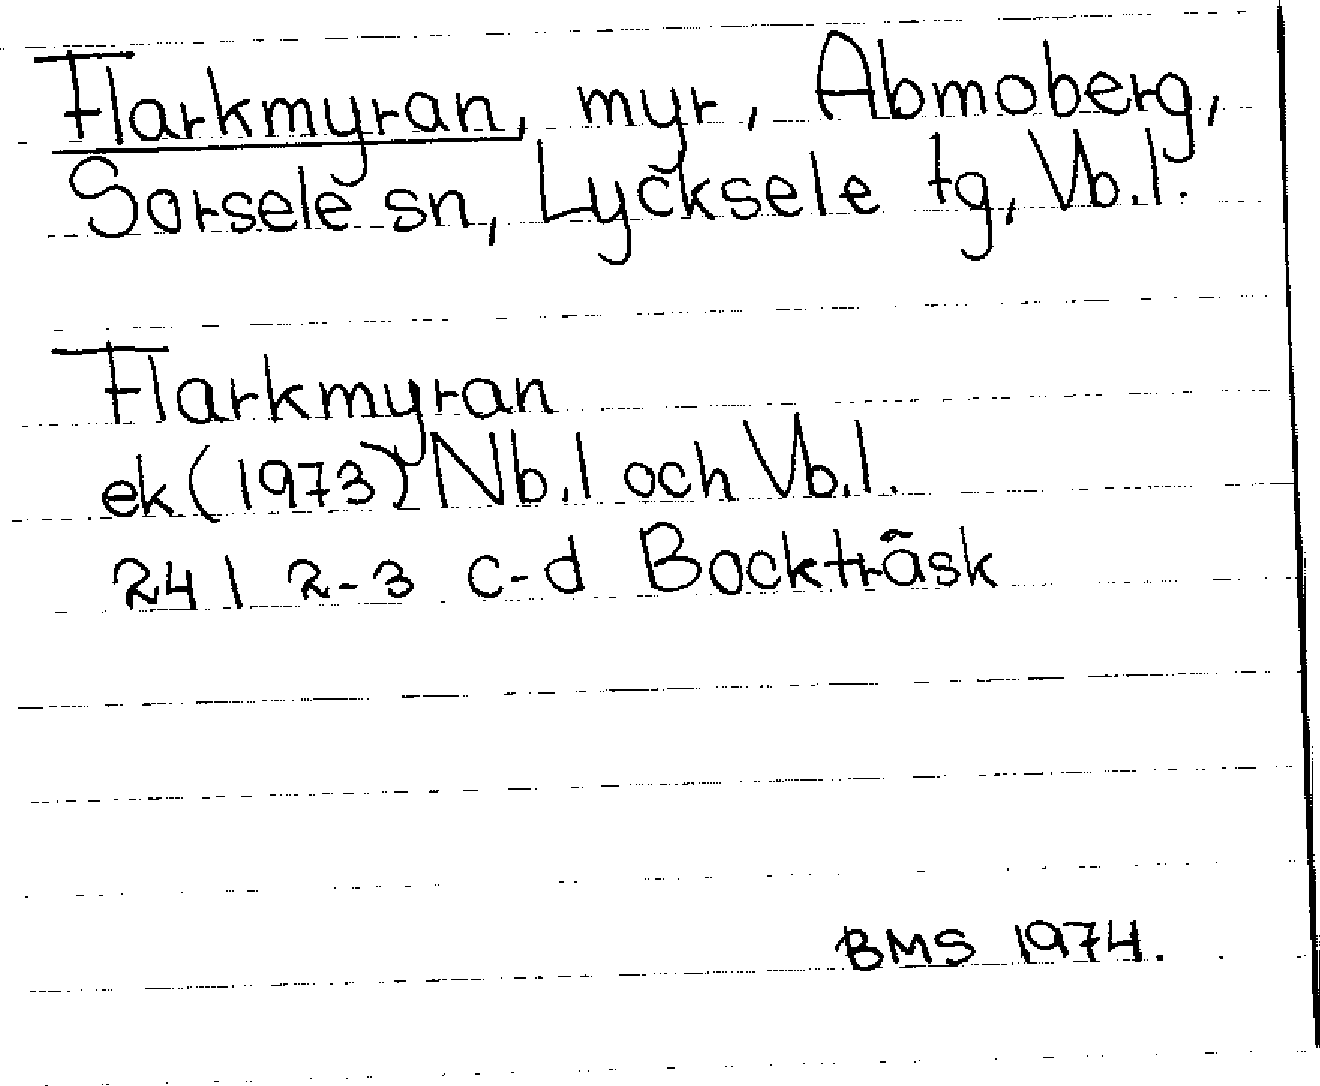 Flarkmyran, myr, Abmoberg,
Sorsele sn, Lycksele tg, Vb.l.
Flarkmyran
ek (1973) Nb.l och Vb.l.
24 I 2-3 c-d Bockträsk
BMS 1974.